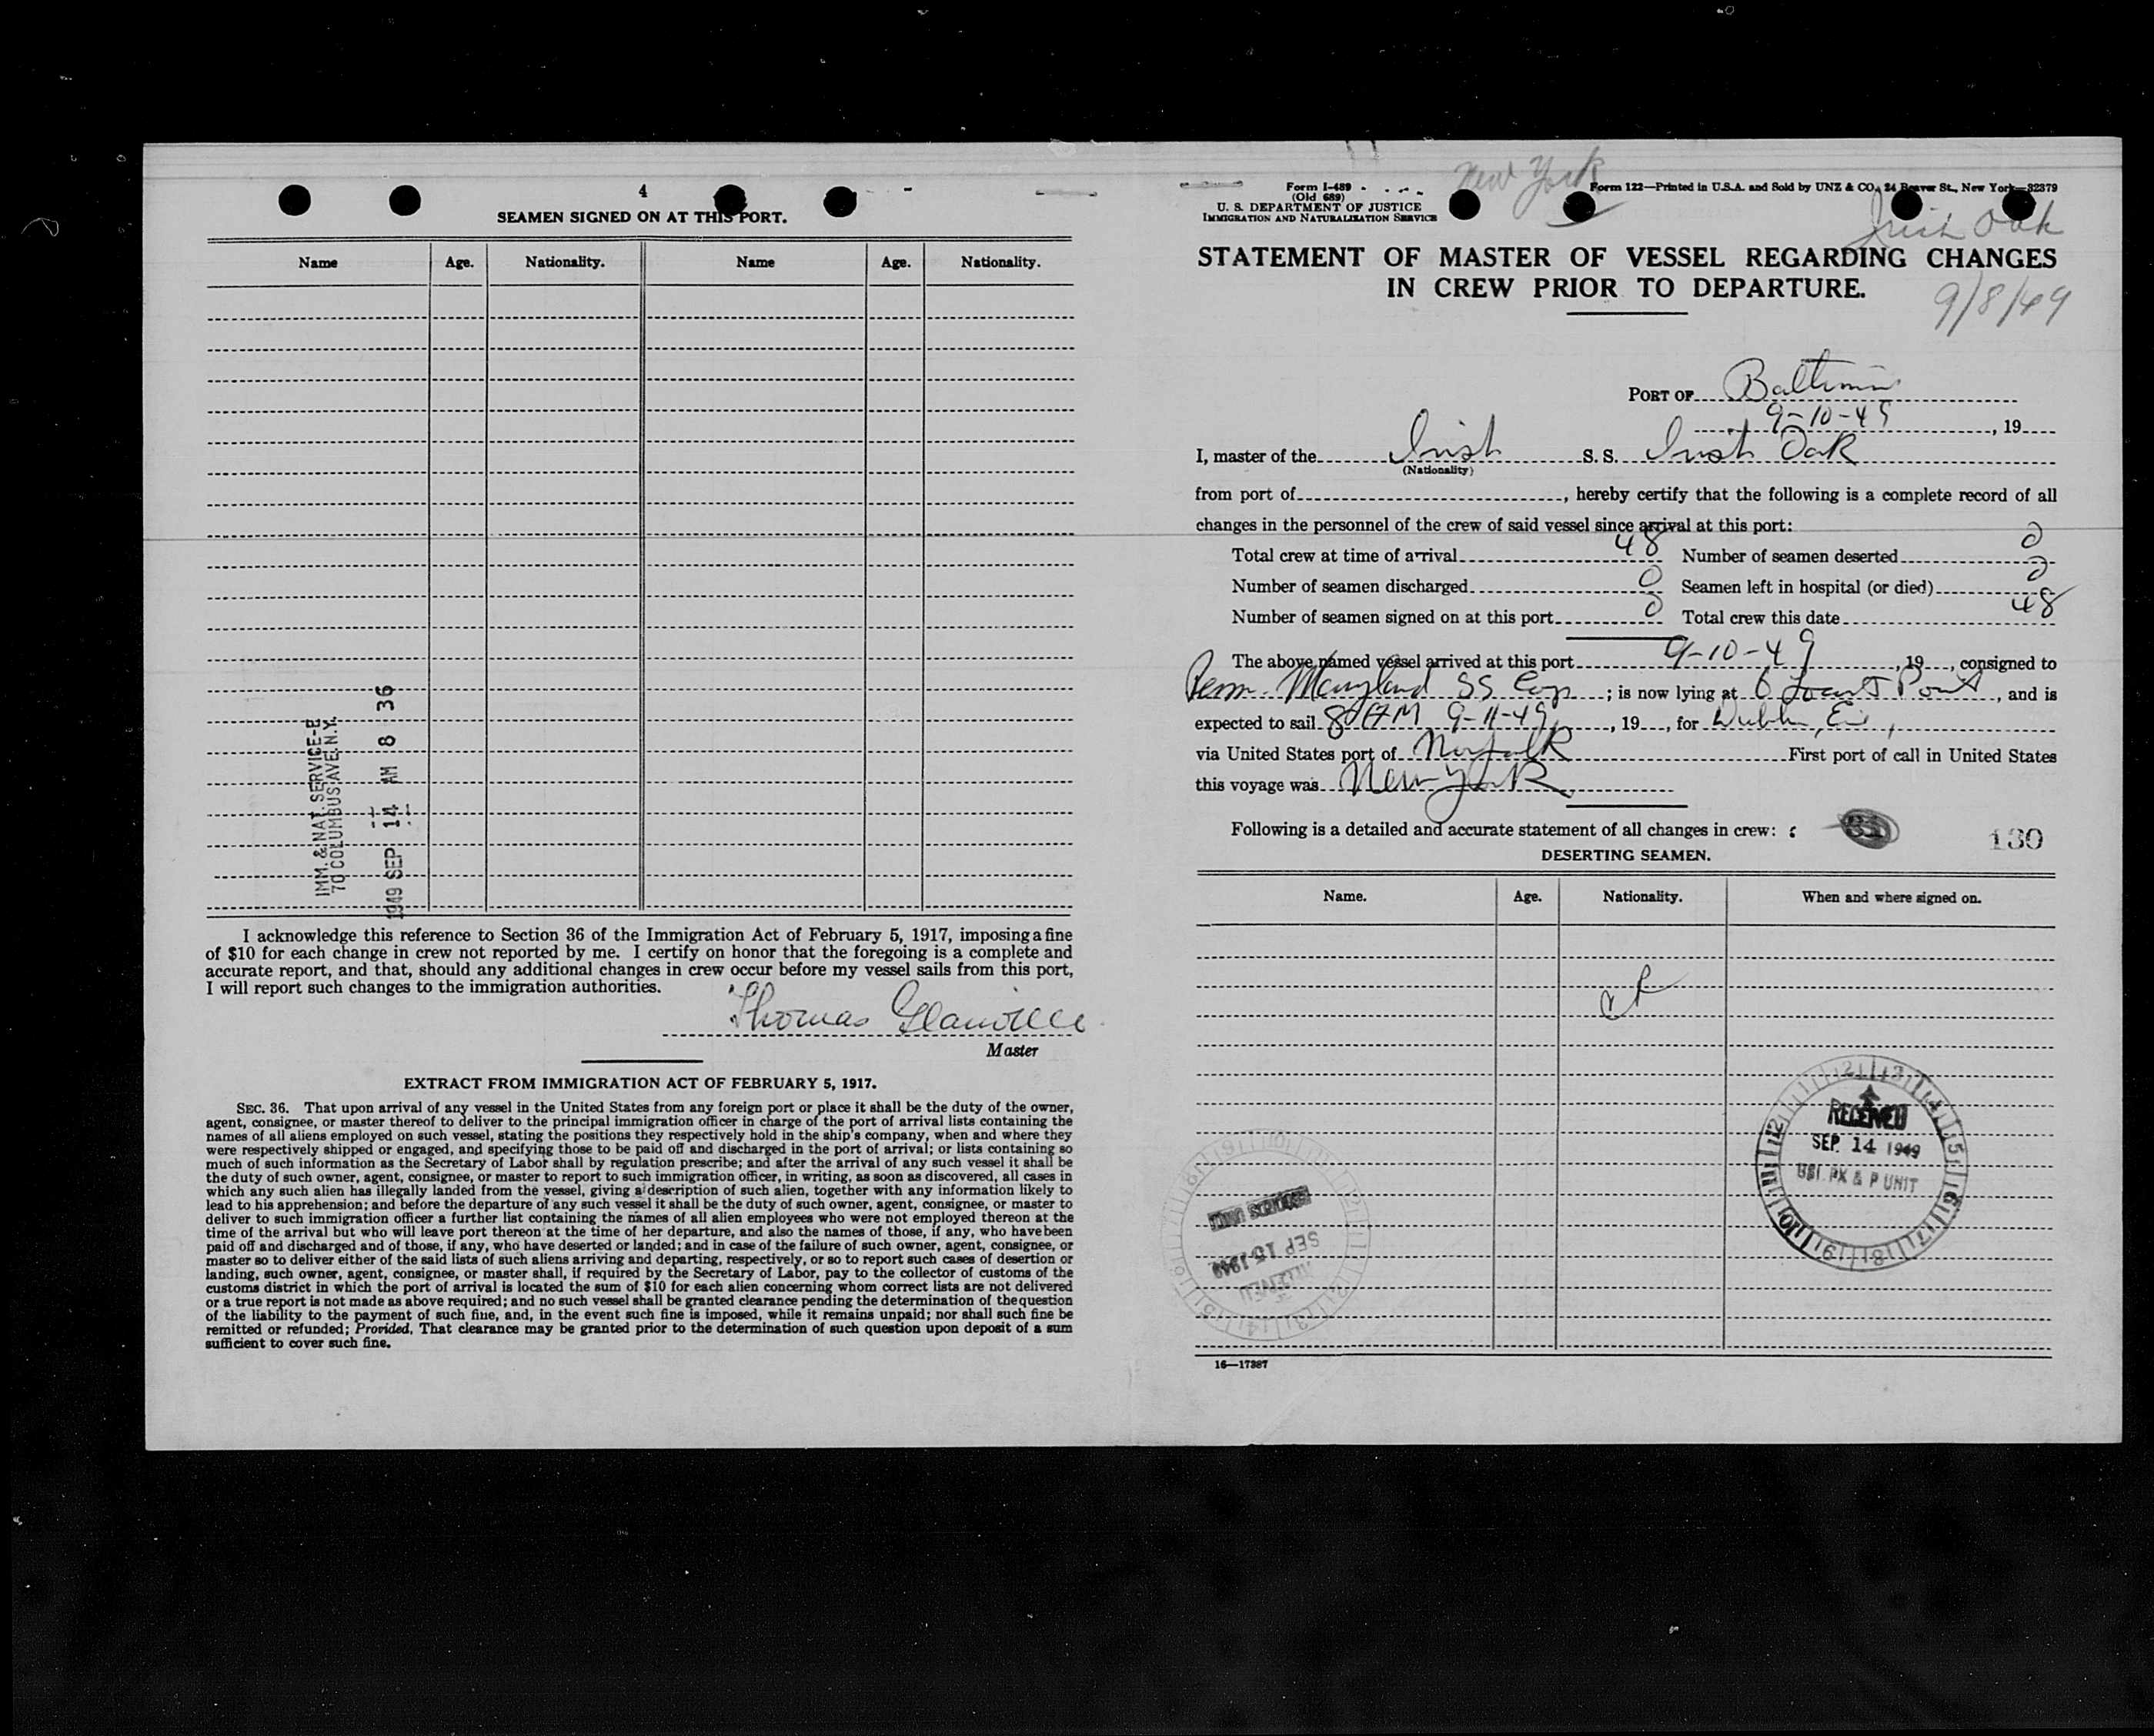 4
SEAMEN SIGNED ON AT THIS PORT.
Name Age. Nationality. Name Age. Nationality.
IMM. & NAT. SERVICE-E
70 COLUMBUS AVE. N.Y.
1949 SEP 14 AM 8 36
I acknowledge this reference to Section 36 of the Immigration Act of February 5, 1917, imposing a fine
of $10 for each change in crew not reported by me. I certify on honor that the foregoing is a complete and
accurate report, and that, should any additional changes in crew occur before my vessel sails from this port,
I will report such changes to the immigration authorities.
Thomas Glanville
Master
EXTRACT FROM IMMIGRATION ACT OF FEBRUARY 5, 1917.
SEC. 36. That upon arrival of any vessel in the United States from any foreign port or place it shall be the duty of the owner,
agent, consignee, or master thereof to deliver to the principal immigration officer in charge of the port of arrival lists containing the
names of all aliens employed on such vessel, stating the positions they respectively hold in the ship's company, when and where they
were respectively shipped or engaged, and specifying those to be paid off and discharged in the port of arrival; or lists containing so
much of such information as the Secretary of Labor shall by regulation prescribe; and after the arrival of any such vessel it shall be
the duty of such owner, agent, consignee, or master to report to such immigration officer, in writing, as soon as discovered, all cases in
which any such alien has illegally landed from the vessel, giving a description of such alien, together with any information likely to
lead to his apprehension; and before the departure of any such vessel it shall be the duty of such owner, agent, consignee, or master to
deliver to such immigration officer a further list containing the names of all alien employees who were not employed thereon at the
time of the arrival but who will leave port thereon at the time of her departure, and also the names of those, if any, who have been
paid off and discharged and of those, if any, who have deserted or landed; and in case of the failure of such owner, agent, consignee, or
master so to deliver either of the said lists of such aliens arriving and departing, respectively, or so to report such cases of desertion or
landing, such owner, agent, consignee, or master shall, if required by the Secretary of Labor, pay to the collector of customs of the
customs district in which the port of arrival is located the sum of $10 for each alien concerning whom correct lists are not delivered
or a true report is not made as above required; and no such vessel shall be granted clearance pending the determination of the question
of the liability to the payment of such fine, and, in the event such fine is imposed, while it remains unpaid; nor shall such fine be
remitted or refunded; Provided, That clearance may be granted prior to the determination of such question upon deposit of a sum
sufficient to cover such fine.
Form I-489
(Old 689)
U. S. DEPARTMENT OF JUSTICE
IMMIGRATION AND NATURALIZATION SERVICE
New York
Form 122—Printed in U.S.A. and Sold by UNZ & CO., 24 Beaver St., New York—32379
Irish Oak
STATEMENT OF MASTER OF VESSEL REGARDING CHANGES
IN CREW PRIOR TO DEPARTURE.
9/8/49
PORT OF Baltimore
9-10-49, 19
I, master of the Irish S. S. Irish Oak
(Nationality)
from port of , hereby certify that the following is a complete record of all
changes in the personnel of the crew of said vessel since arrival at this port:
Total crew at time of arrival 48 Number of seamen deserted 0
Number of seamen discharged 0 Seamen left in hospital (or died) 0
Number of seamen signed on at this port 0 Total crew this date 48
The above named vessel arrived at this port 9-10-49, 19 , consigned to
Penn. Maryland SS Corp ; is now lying at 6 Locust Point, and is
expected to sail 8 AM 9-11-49, 19 , for Dublin, Eire,
via United States port of Norfolk First port of call in United States
this voyage was New York
Following is a detailed and accurate statement of all changes in crew:
130
DESERTING SEAMEN.
Name. Age. Nationality. When and where signed on.
RECEIVED
SEP 14 1949
P UNIT
SEP 15 1949
16—17387